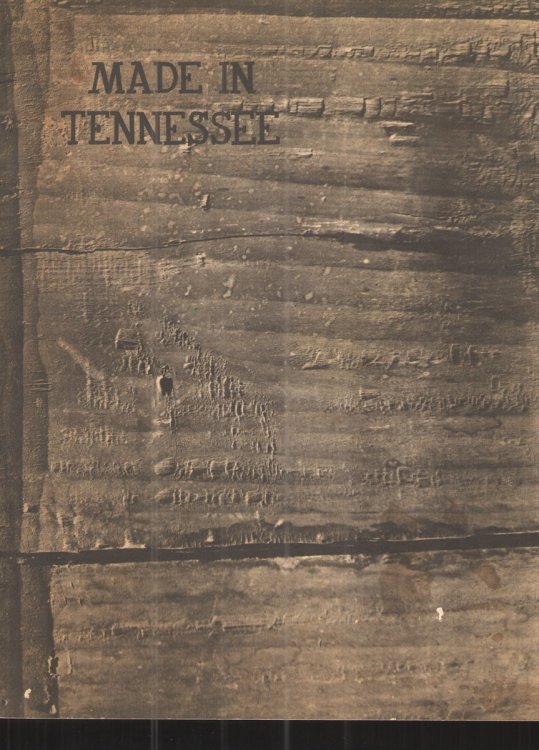 MADE IN
TENNESSEE